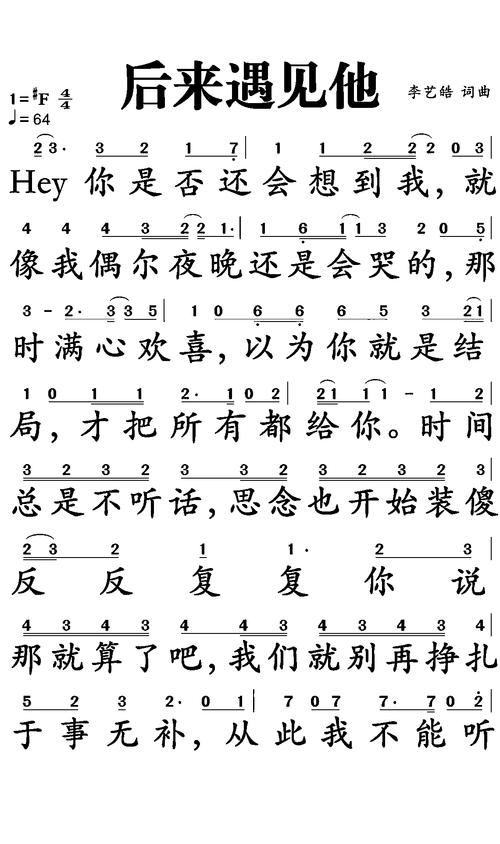 后来遇见他
李艺皓 词曲
1=#F 4/4
♩=64
2 3· 3 2 1 7 | 1 1 2 2 2 0 3 |
Hey 你是否还会想到我，就
4 4 4 3 2 2 1· | 1 6 1 1 3 2 0 5 |
像我偶尔夜晚还是会哭的，那
3 - 2· 3 3 5 | 1 0 6 6 6 5 3 2 1 |
时满心欢喜，以为你就是结
1 0 1 1 2· 1 0 2 | 2 1 1 1 - 1 2 |
局，才把所有都给你。时间
3 2 3 2 3 3 2 3 2 3 2 3 |
总是不听话，思念也开始装傻
2 3 2 1 1· 2 3 |
反反复复你说
4 3 4 3 4 3 4 3 4 3 4 3 |
那就算了吧，我们就别再挣扎
5 2 3 2· 0 1 | 7 0 7 7· 7 0 2 |
于事无补，从此我不能听